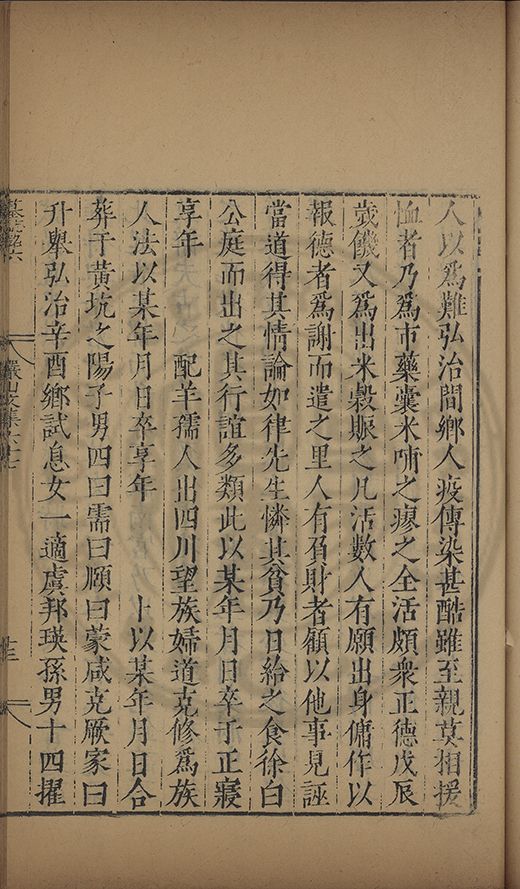 人以爲難弘治間鄉人疫傳染甚酷雖至親莫相援
恤者乃爲市藥囊米哺之瘳之全活頗衆正德戊辰
歲饑又爲出米穀賑之凡活數人有願出身傭作以
報德者爲謝而遣之里人有負財者顧以他事見誣
當道得其情論如律先生憐其貧乃日給之食徐白
公庭而出之其行誼多類此以某年月日卒于正寢
享年　　　配羊孺人出四川望族婦道克修爲族
人法以某年月日卒享年　　　卜以某年月日合
葬于黃坑之陽子男四曰需曰順曰蒙咸克厥家曰
升舉弘治辛酉鄉試息女一適虞邦瑛孫男十四擢
墓誌銘六
儼山文集六十七
十三